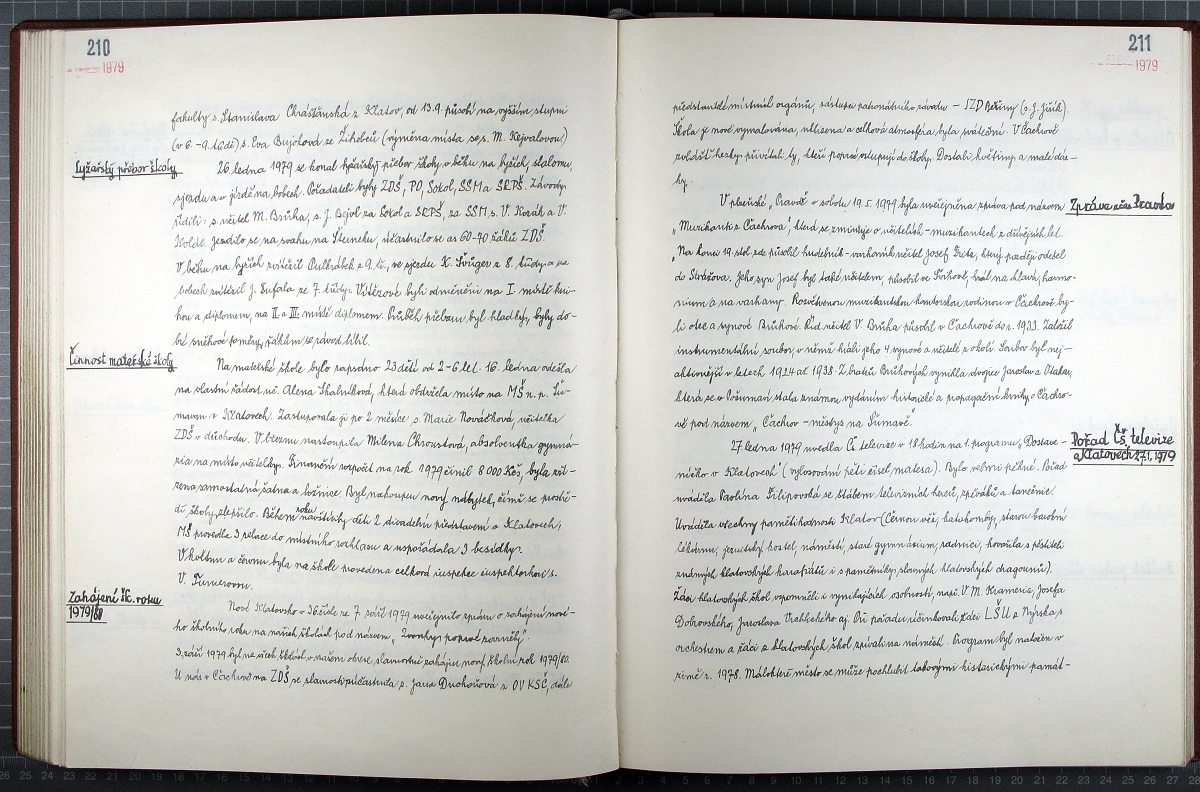 210
1979
fakulty s. Stanislava Chrášťanská z Klatov, od 13.9. působí na vyšším stupni
(v 6.-9. tř.) s. Eva Bujoková ze Žihobců (výměna místa se s. M. Kejvalovou)
Lyžařský přebor školy
26. ledna 1979 se konal lyžařský přebor školy v běhu na lyžích, slalomu,
sjezdu a v jízdě na bobech. Pořadateli byly ZDŠ, PO, Sokol, SSM a SRPŠ. Závody
řídili: s. učitel M. Brůha, s. J. Bejvl za Sokol a SRPŠ, za SSM s. V. Korák a V.
Kolář. Jezdilo se na svahu na Stemeku, účastnilo se as 60-70 žáků ZDŠ.
V běhu na lyžích zvítězil Pulkrábek z 9. tř., ve sjezdu K. Švůger z 8. třídy a na
bobech zvítězil J. Tufala ze 7. třídy. Vítězové byli odměněni na I. místě kni-
hou a diplomem, na II. a III. místě diplomem. Průběh přeboru byl hladký, byly do-
bré sněhové poměry, žákům se závod líbil.
Činnost mateřské školy
Na mateřské škole bylo zapsáno 23 dětí od 2-6 let. 16. ledna odešla
na vlastní žádost uč. Alena Skalníková, která obdržela místo na MŠ n. p. Šu-
mavan v Klatovech. Zastupovala ji po 2 měsíce s. Marie Nováčková, učitelka
ZDŠ v důchodu. V březnu nastoupila Milena Chroustová, absolventka gymná-
zia na místo učitelky. Finanční rozpočet na rok 1979 činil 8 000 Kčs, byla zří-
zena samostatná šatna a ložnice. Byl nakoupen nový nábytek, čímž se prostře-
dí školy zlepšilo. Během roku navštívily děti 2 divadelní představení v Klatovech,
MŠ provedla 3 relace do místního rozhlasu a uspořádala 3 besídky.
V květnu a červnu byla na škole provedena celková inspekce inspektorkou s.
V. Turnerovou.
Zahájení šk. roku
1979/80
Nové Klatovsko v 36. čísle ze 7. září 1979 uveřejnilo zprávu o zahájení nové-
ho školního roku na našich školách pod názvem „Zvonky poprvé zazněly".
3. září 1979 byl na všech školách v našem okrese slavnostně zahájen nový školní rok 1979/80.
U nás v Čachrově na ZDŠ se slavnosti zúčastnila s. Jana Duchoňová z OV KSČ, dále
211
1979
představitelé místních orgánů, zástupce patronátního závodu – JZD Běšiny (s. J. Jiřík).
Škola je nově vymalována, uklizena a celková atmosféra byla sváteční. V Čachrově
zvláště hezky přivítali ty, kteří poprvé vstupují do školy. Dostali květiny a malé dár-
ky.
Zpráva z čas. Pravda
V plzeňské „Pravdě" v sobotu 19.5.1979 byla uveřejněna zpráva pod názvem
„Muzikanti z Čachrova", která se zmiňuje o učitelích-muzikantech z dřívějších let.
„Na konci 19. stol. zde působil hudebník-varhaník učitel Josef Žito, který později odešel
do Strážova. Jeho syn Josef byl také učitelem, působil ve Švihově, hrál na klavír, harmo-
nium a na varhany. Rozvětvenou muzikantskou kantorskou rodinou v Čachrově by-
li otec a synové Brůhové. Říd. učitel V. Brůha působil v Čachrově do r. 1933. Založil
instrumentální soubor, v němž hráli jeho 4 synové a učitelé z okolí. Soubor byl nej-
aktivnější v letech 1924 až 1938. Z bratrů Brůhových vynikla dvojice Jaroslav a Otakar,
která se v Pošumaví stala známou vydáním historické a propagační knihy o Čachro-
vě pod názvem „Čachrov – městys na Šumavě".
Pořad Čs. televize
z Klatovech 27.1.1979
27. ledna 1979 uvedla Čs. televize v 18 hodin na 1. programu „Dostave-
níčko v Klatovech" (vylosování pěti čísel matesa). Bylo velmi pěkné. Pořad
uváděla Pavlína Filipovská se štábem televizních herců, zpěváků a tanečnic.
Uváděla všechny pamětihodnosti Klatov (Černou věž, katakomby, starou barokní
lékárnu, jezuitský kostel, náměstí, staré gymnázium, radnici, hovořila s pěstiteli
známých klatovských karafiátů i s pamětníky slavných klatovských dragounů).
Žáci klatovských škol vzpomněli i vynikajících osobností, např. V. M. Krameria, Josefa
Dobrovského, Jaroslava Vrchlického aj. Při pořadu účinkovali žáci LŠU z Nýrska s
orchestrem a žáci z klatovských škol zpívali na náměstí. Program byl natočen v
zimě r. 1978. Málokteré město se může pochlubit takovými historickými památ-